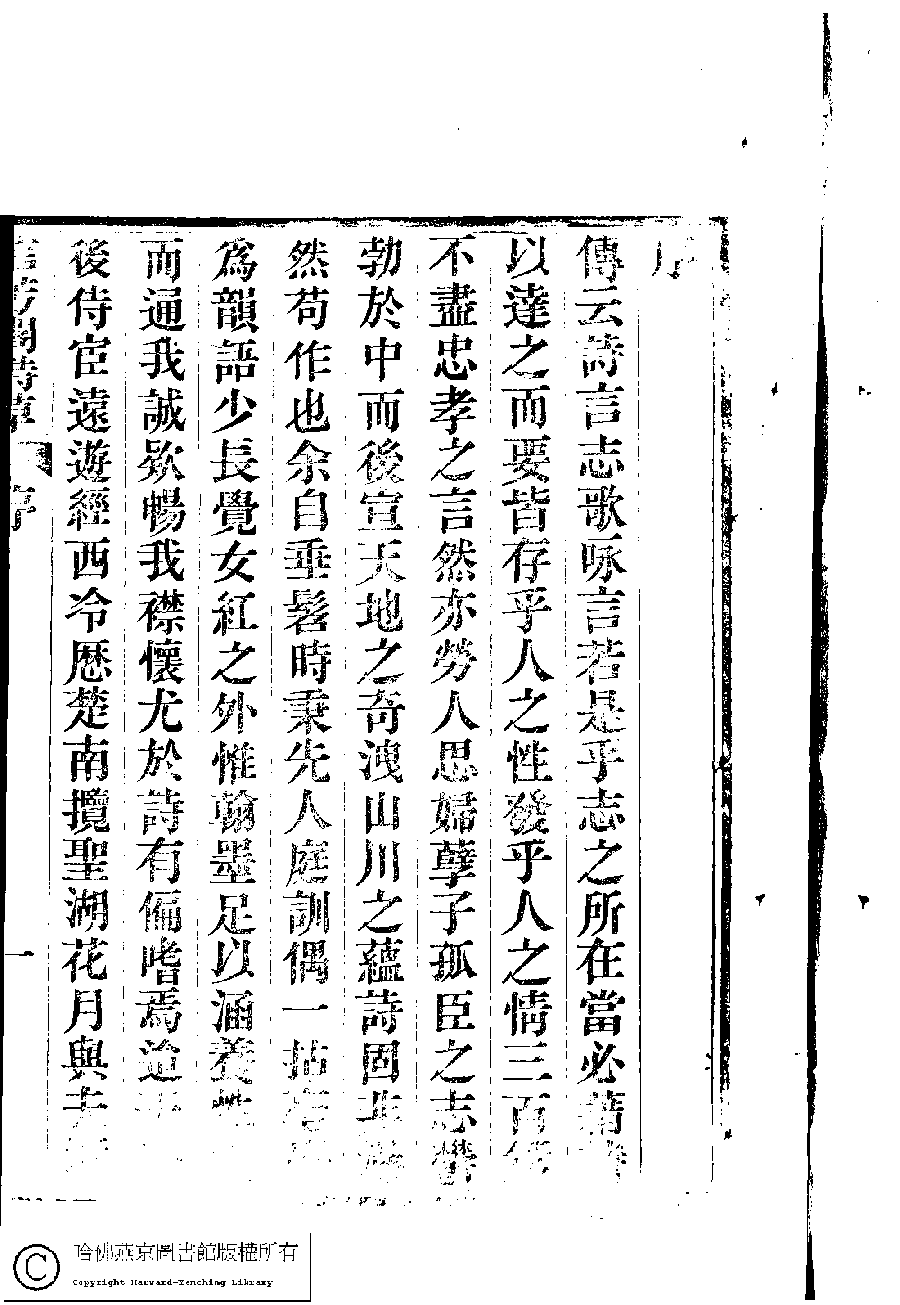 序
傳云詩言志歌咏言若是乎志之所在當必藉詩
以達之而要皆存乎人之性發乎人之情三百篇
不盡忠孝之言然亦勞人思婦孽子孤臣之志鬱
勃於中而後宣天地之奇洩山川之蘊詩固非
然苟作也余自垂髫時秉先人庭訓偶一拈
為韻語少長覺女紅之外惟翰墨足以涵養性
而通我誠欵暢我襟懷尤於詩有偏嗜焉迨
後侍宦遠遊經西冷歷楚南攬聖湖花月與夫
芳閣詩草 序 一
哈佛燕京圖書館版權所有
Copyright Harvard-Yenching Library